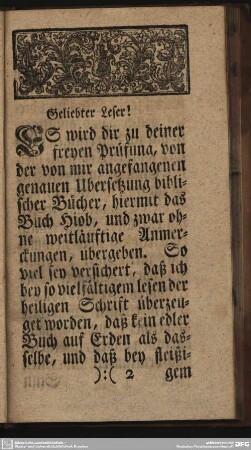 Geliebter Leser!
ES wird dir zu deiner
freyen Prüfung, von
der von mir angefangenen
genauen Ubersetzung bibli-
scher Bücher, hiermit das
Buch Hiob, und zwar oh-
ne weitläuftige Anmer-
ckungen, übergeben. So
viel sey versichert, daß ich
bey so vielfältigem lesen der
heiligen Schrift überzeu-
get worden, daß kein edler
Buch auf Erden als das-
selbe, und daß bey fleißi-
):( 2 gem